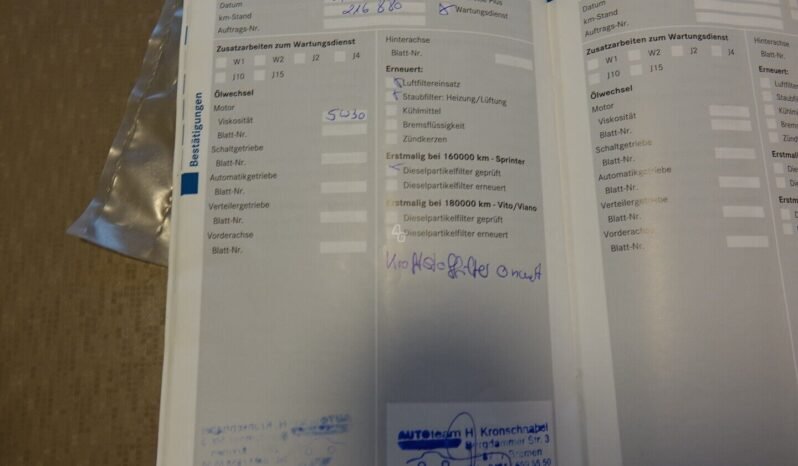 Datum
km-Stand 216 880
Auftrags-Nr.
Wartungsdienst
Zusatzarbeiten zum Wartungsdienst
W1 W2 J2 J4
J10 J15
Ölwechsel
Motor
Viskosität 5W30
Blatt-Nr.
Schaltgetriebe
Blatt-Nr.
Automatikgetriebe
Blatt-Nr.
Verteilergetriebe
Blatt-Nr.
Vorderachse
Blatt-Nr.
Bestätigungen
Hinterachse
Blatt-Nr.
Erneuert:
Luftfiltereinsatz
Staubfilter: Heizung/Lüftung
Kühlmittel
Bremsflüssigkeit
Zündkerzen
Erstmalig bei 160000 km - Sprinter
Dieselpartikelfilter geprüft
Dieselpartikelfilter erneuert
Erstmalig bei 180000 km - Vito/Viano
Dieselpartikelfilter geprüft
Dieselpartikelfilter erneuert
Kraftstofffilter erneuert
AUTOteam H. Kronschnabel
Str. 3
Bremen
Datum
km-Stand
Auftrags-Nr.
Zusatzarbeiten zum Wartungsdienst
W1 W2 J2 J4
J10 J15
Ölwechsel
Motor
Viskosität
Blatt-Nr.
Schaltgetriebe
Blatt-Nr.
Automatikgetriebe
Blatt-Nr.
Verteilergetriebe
Blatt-Nr.
Vorderachse
Blatt-Nr.
Hinterachse
Blatt-Nr.
Erneuert: